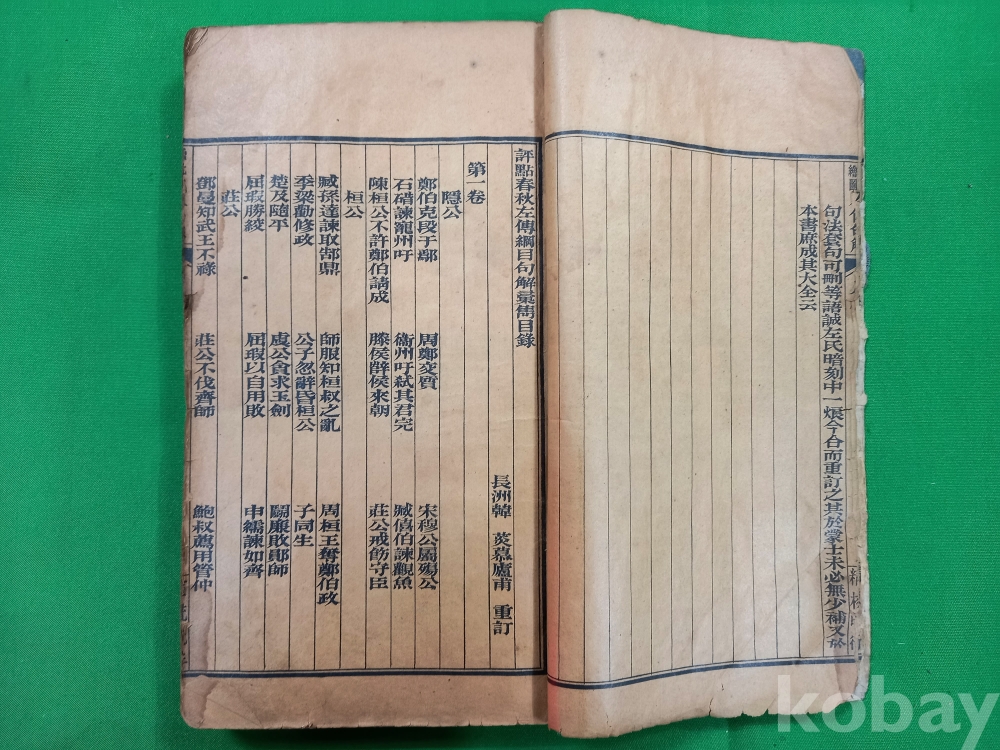 句法套句可刪等語誠左氏暗刻中一炬今合而重訂之其於蒙士未必無少補又於
本書庶成其大全云
評點春秋左傳綱目句解彙雋目錄
長洲韓 菼慕廬甫 重訂
第一卷
隱公
鄭伯克段于鄢 周鄭交質 宋穆公屬殤公
石碏諫寵州吁 衞州吁弑其君完 臧僖伯諫觀魚
陳桓公不許鄭伯請成 滕侯薛侯來朝 莊公戒飭守臣
桓公
臧孫達諫取郜鼎 師服知桓叔之亂 周桓王奪鄭伯政
季梁勸修政 公子忽辭昏桓公 子同生
楚及隨平 虞公貪求玉劍 鬬廉敗鄖師
屈瑕勝絞 屈瑕以自用敗 申繻諫如齊
莊公
鄧曼知武王不祿 莊公不伐齊師 鮑叔薦用管仲
kobay